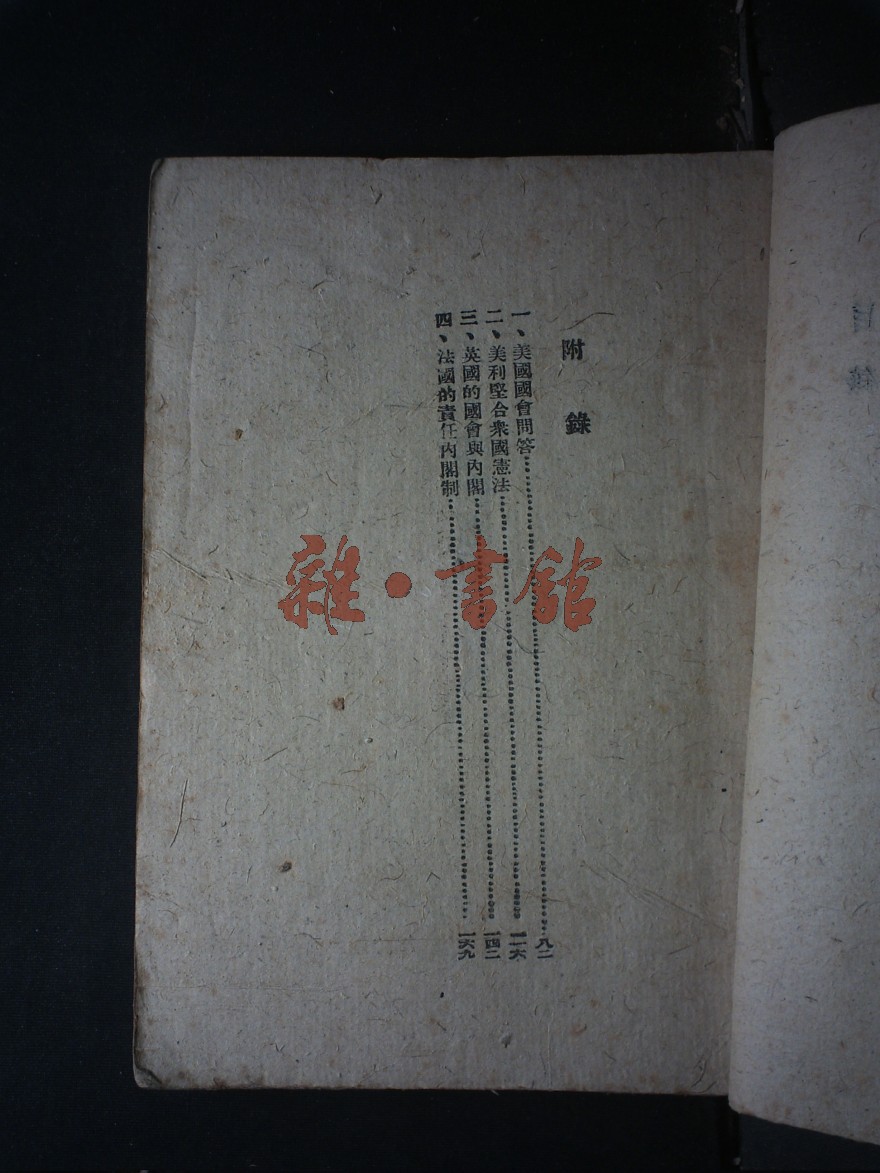 附錄
一、美國國會問答……八二
二、美利堅合衆國憲法……一一六
三、英國的國會與內閣……一四二
四、法國的責任內閣制……一六九
雜·書館